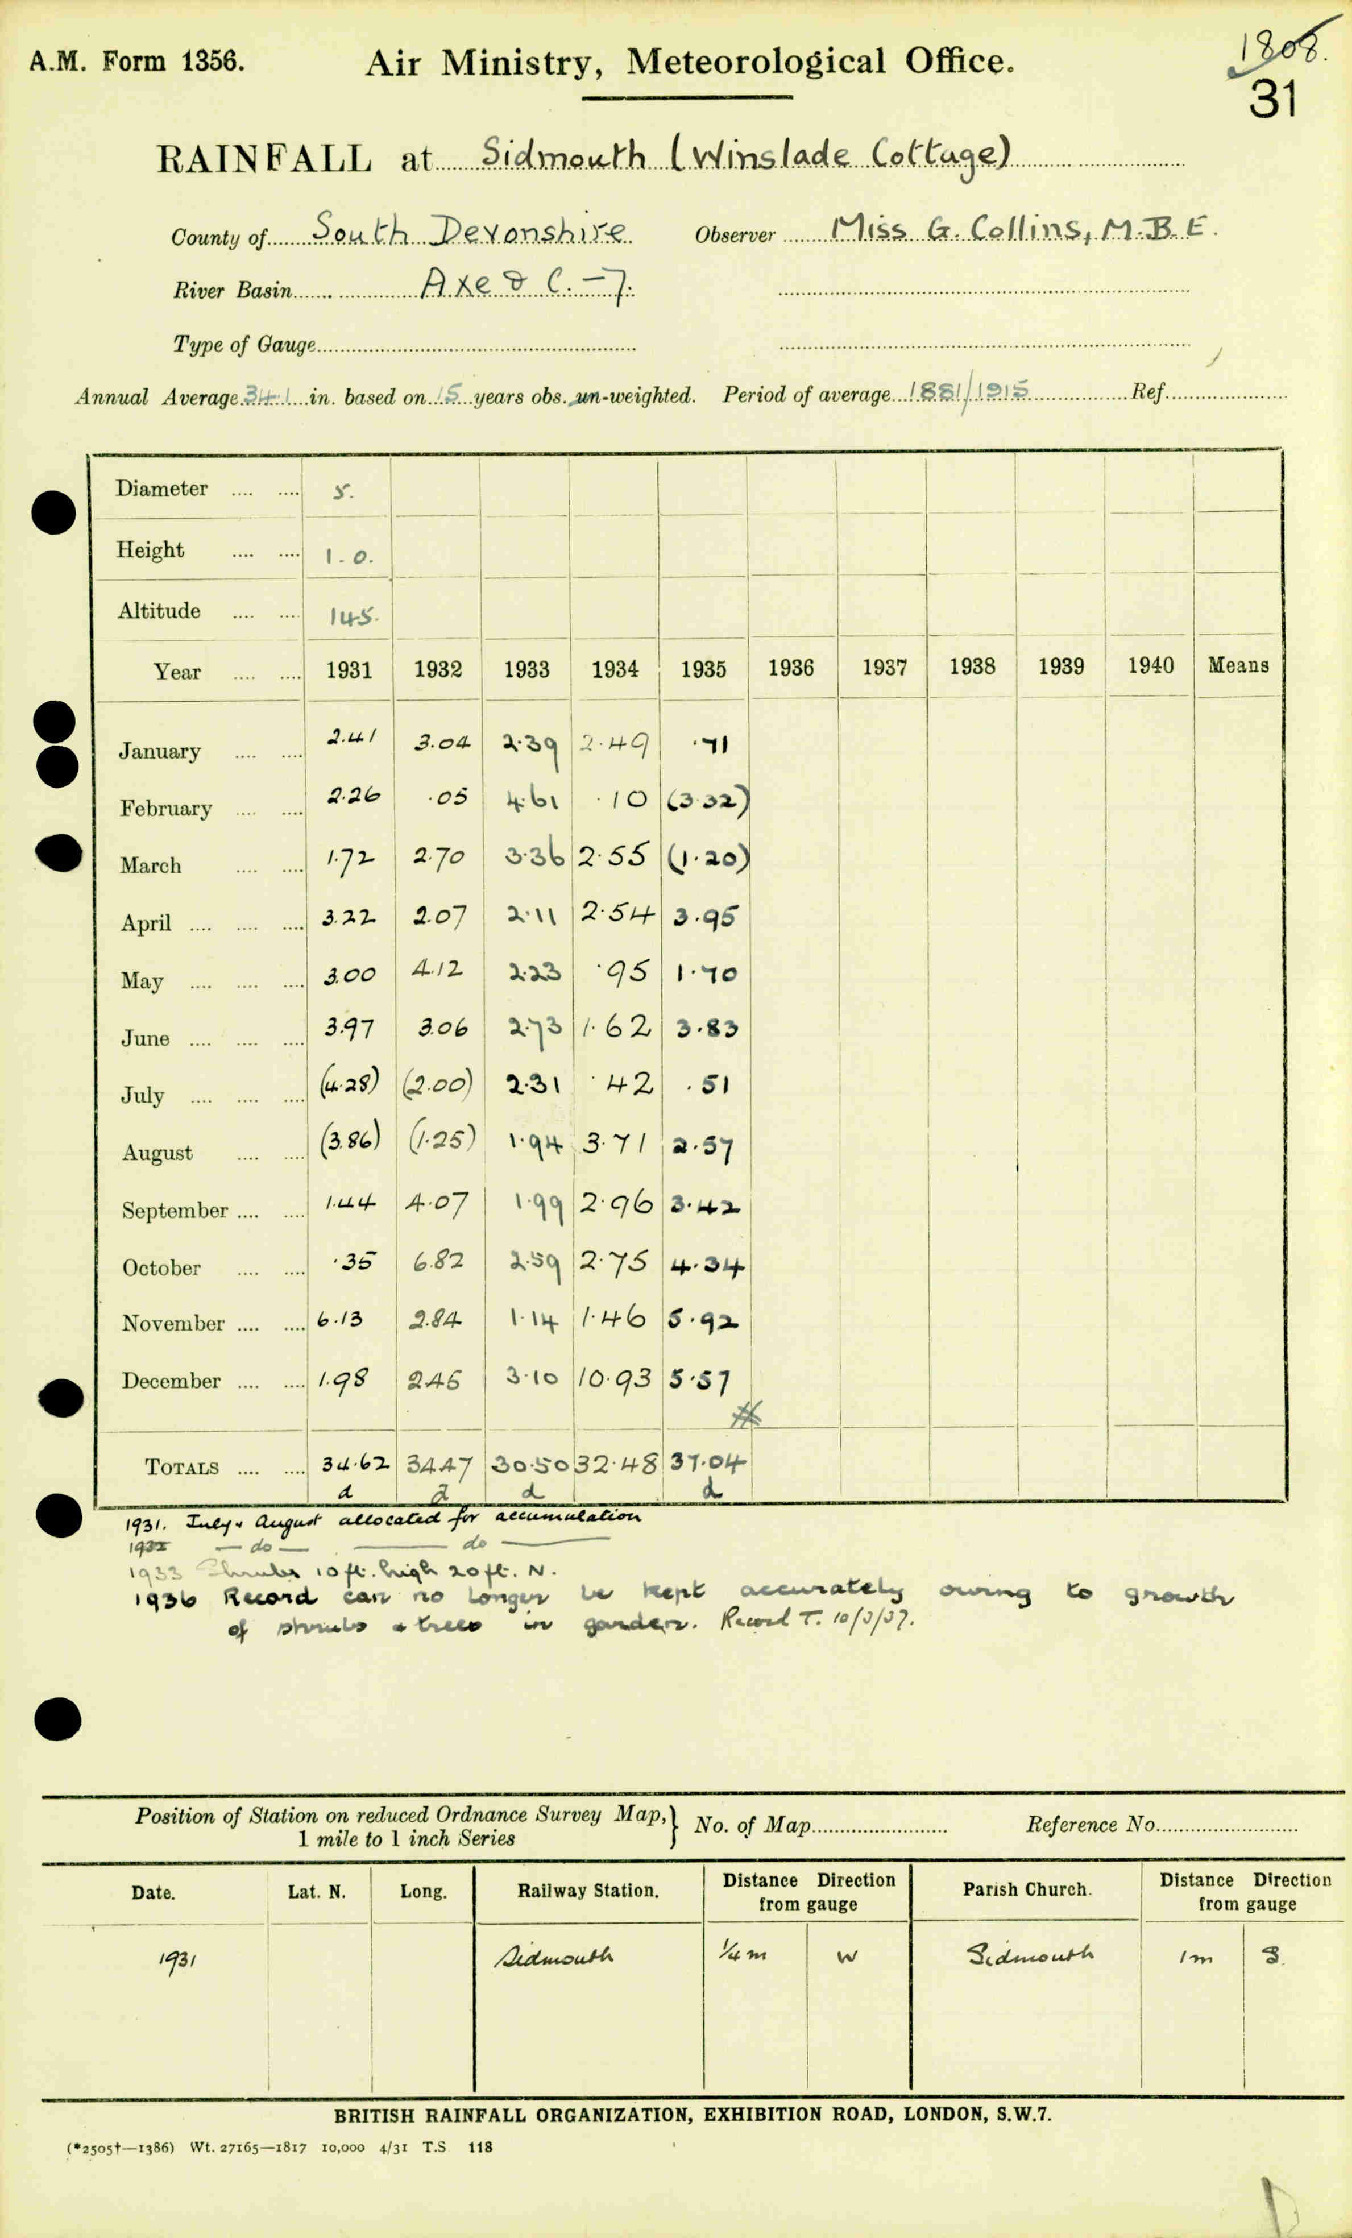 A.M. Form 1356.
Air Ministry, Meteorological Office.
1808.
31
RAINFALL at Sidmouth (Winslade Cottage)
County of South Devonshire Observer Miss G. Collins, M.B.E.
River Basin Axe & C. -7.
Type of Gauge
Annual Average 34.1 in. based on 15 years obs. un-weighted. Period of average 1881/1915 Ref.
Diameter 5.
Height 1.0.
Altitude 145.
Year 1931 1932 1933 1934 1935 1936 1937 1938 1939 1940 Means
January 2.41 3.04 2.39 2.49 .71
February 2.26 .05 4.61 .10 (3.32)
March 1.72 2.70 3.36 2.55 (1.20)
April 3.22 2.07 2.11 2.54 3.95
May 3.00 4.12 2.23 .95 1.70
June 3.97 3.06 2.73 1.62 3.83
July (4.28) (2.00) 2.31 .42 .51
August (3.86) (1.25) 1.94 3.71 2.57
September 1.44 4.07 1.99 2.96 3.42
October .35 6.82 2.59 2.75 4.34
November 6.13 2.84 1.14 1.46 5.92
December 1.98 2.45 3.10 10.93 5.57
TOTALS 34.62 34.47 30.50 32.48 37.04
d d d d
1931. July & August allocated for accumulation
1932 — do — — do —
1933 Shrubs 10 ft. high 20 ft. N.
1936 Record can no longer be kept accurately owing to growth
of shrubs & trees in garden. Record T. 10/3/37.
Position of Station on reduced Ordnance Survey Map, } No. of Map Reference No.
1 mile to 1 inch Series
Date. Lat. N. Long. Railway Station. Distance Direction Parish Church. Distance Direction
from gauge from gauge
1931 Sidmouth 1/4 m W Sidmouth 1 m S.
BRITISH RAINFALL ORGANIZATION, EXHIBITION ROAD, LONDON, S.W.7.
(*2505†—1386) Wt. 27165—1817 10,000 4/31 T.S 118